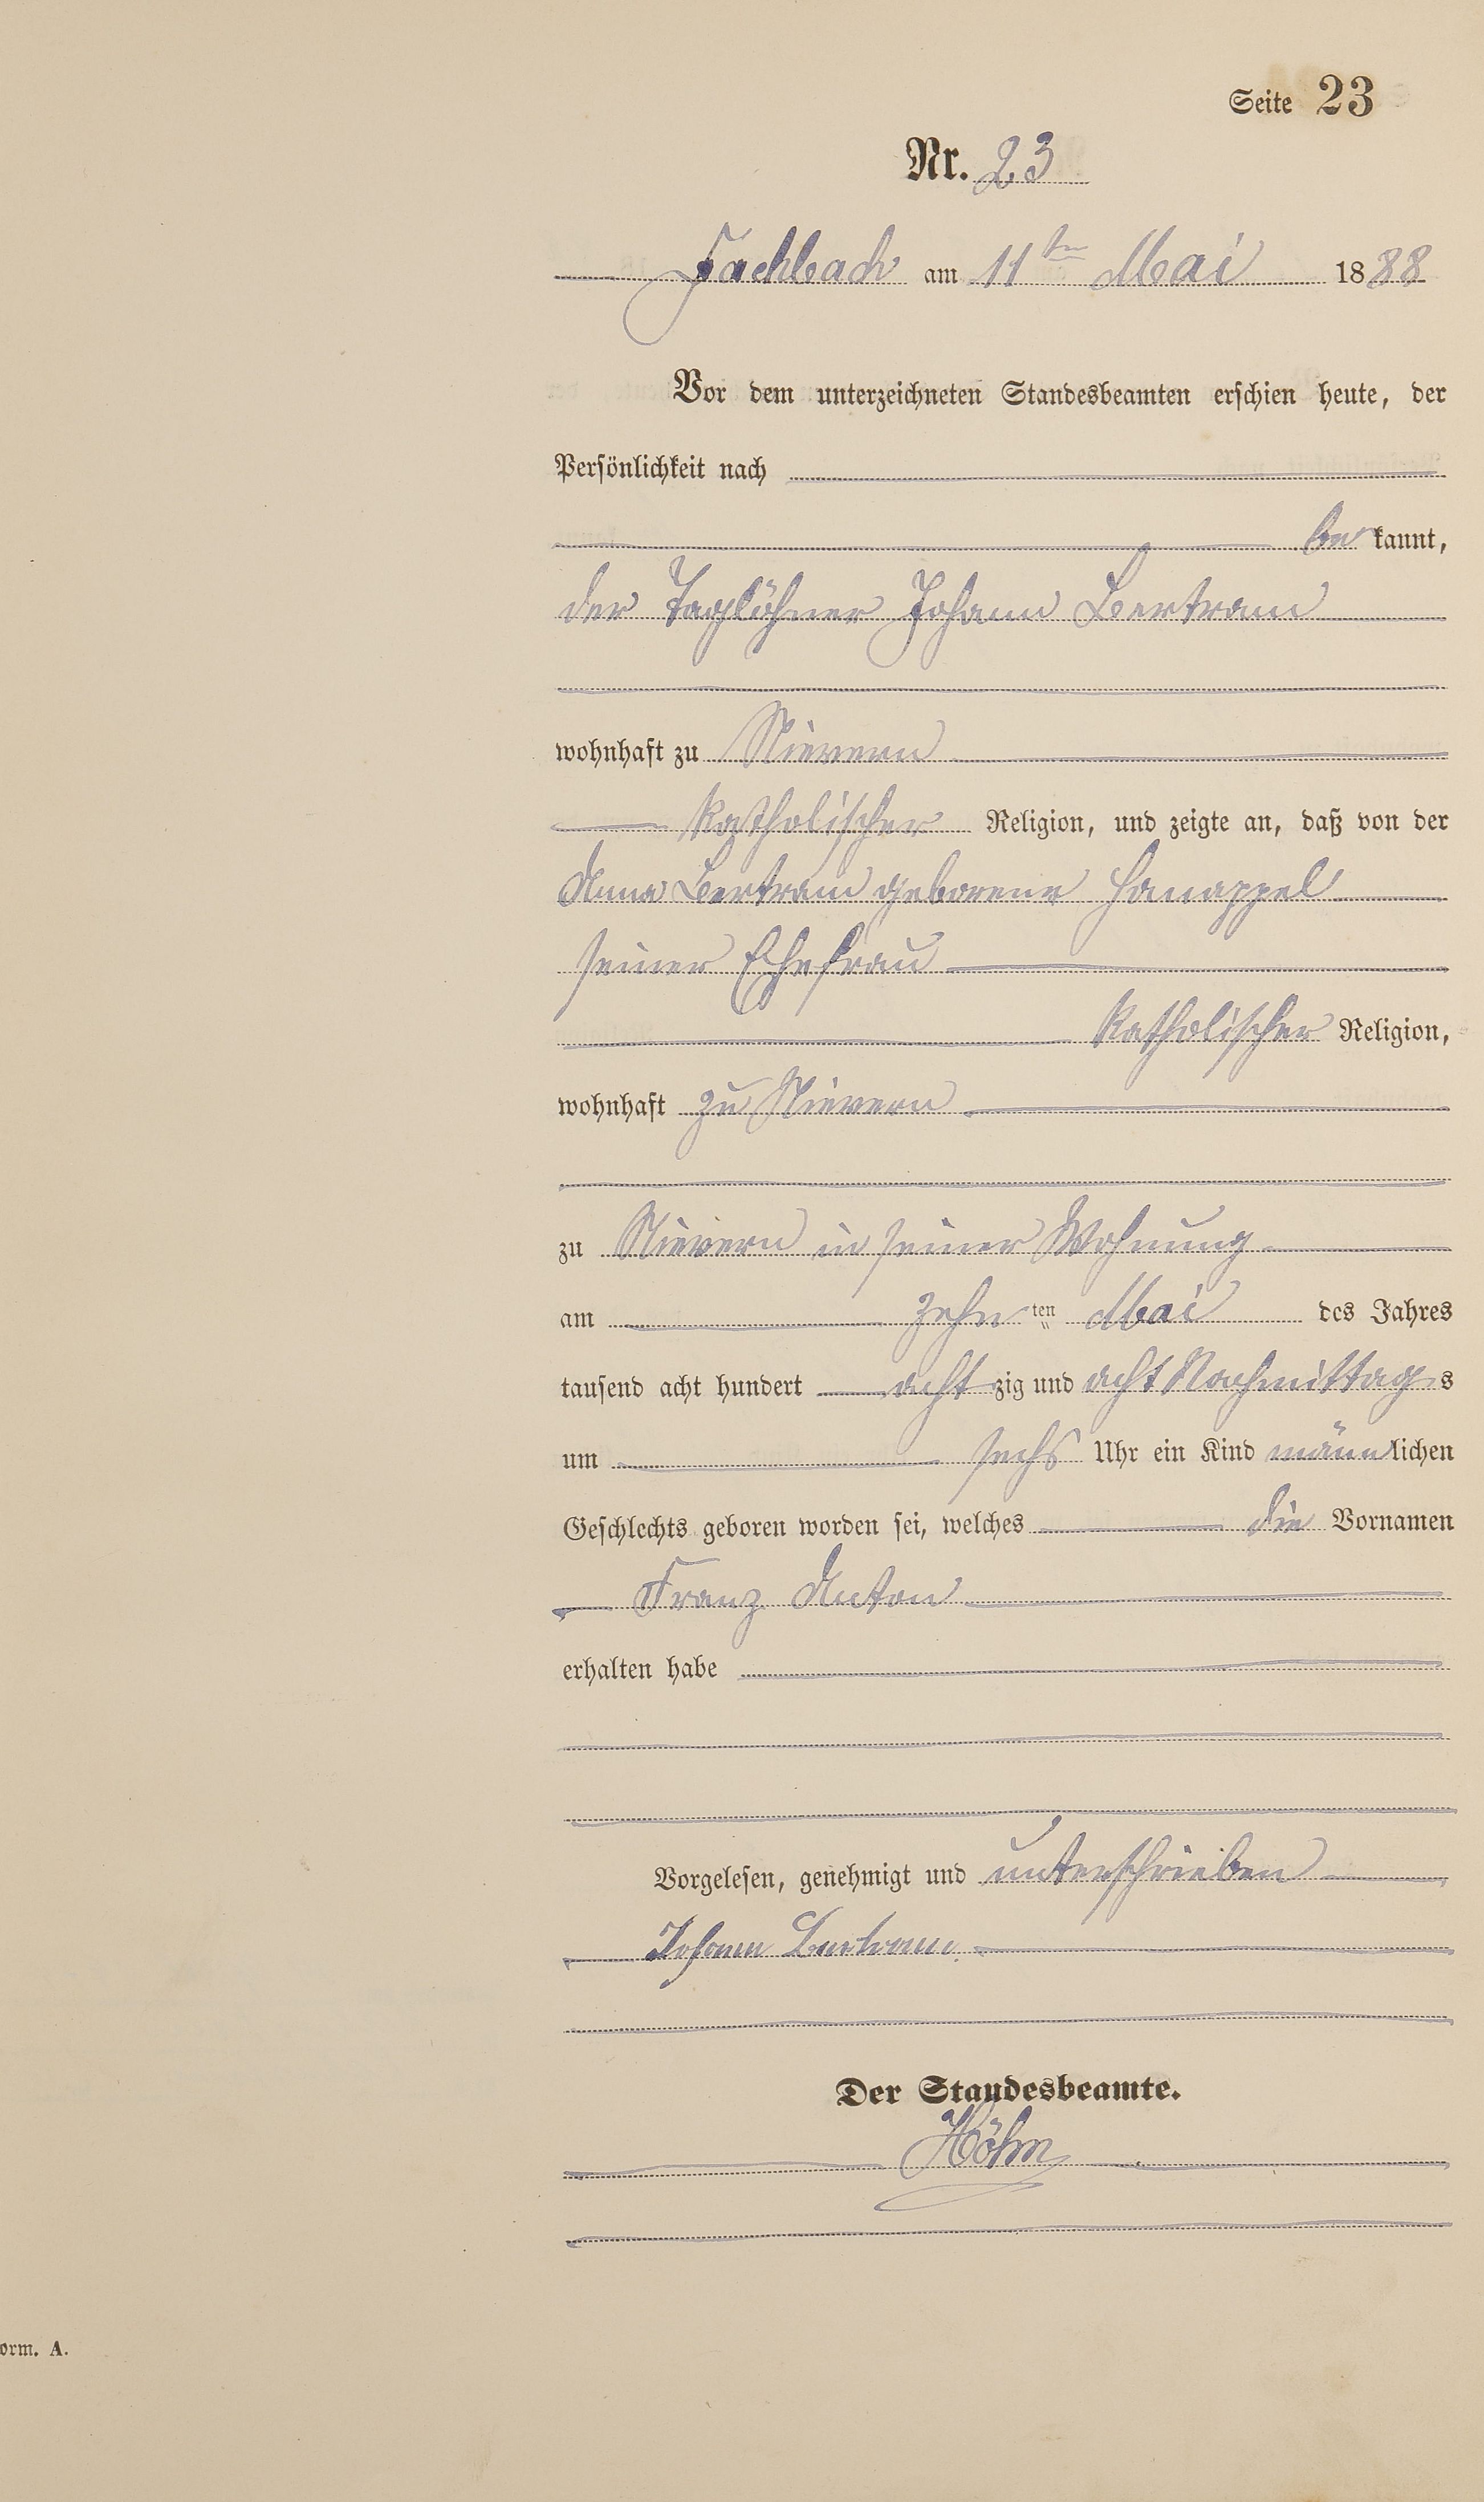 Seite 23
Nr. 23
Fachbach am 11ten Mai 1888
Vor dem unterzeichneten Standesbeamten erschien heute, der
Persönlichkeit nach
bekannt,
der Taglöhner Johann Bertram
wohnhaft zu Nievern
katholischer Religion, und zeigte an, daß von der
Anna Bertram geborene Hanappel
seiner Ehefrau
katholischer Religion,
wohnhaft zu Nievern
zu Nievern in seiner Wohnung
am zehnten Mai des Jahres
tausend acht hundert achtzig und acht Nachmittags
um sechs Uhr ein Kind männlichen
Geschlechts geboren worden sei, welches die Vornamen
Franz Anton
erhalten habe
Vorgelesen, genehmigt und unterschrieben
Johann Bertram.
Der Standesbeamte.
Höhn
orm. A.